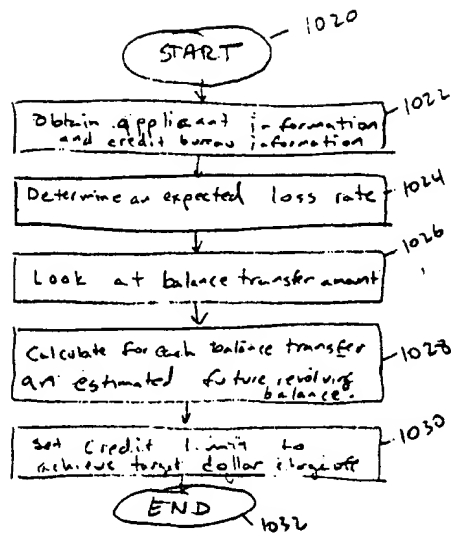 1020
START
1022
Obtain applicant information
and credit bureau information
1024
Determine an expected loss rate
1026
Look at balance transfer amount
Calculate for each balance transfer
an estimated future revolving
balance.
1028
1030
Set credit limit to
achieve target dollar chargeoff
END
1032